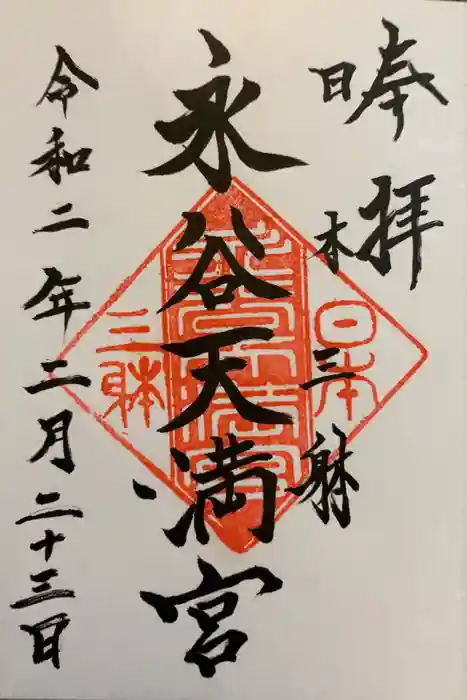 奉拝
日木三躰
永谷天満宮
令和二年二月二十三日
日本
三躰